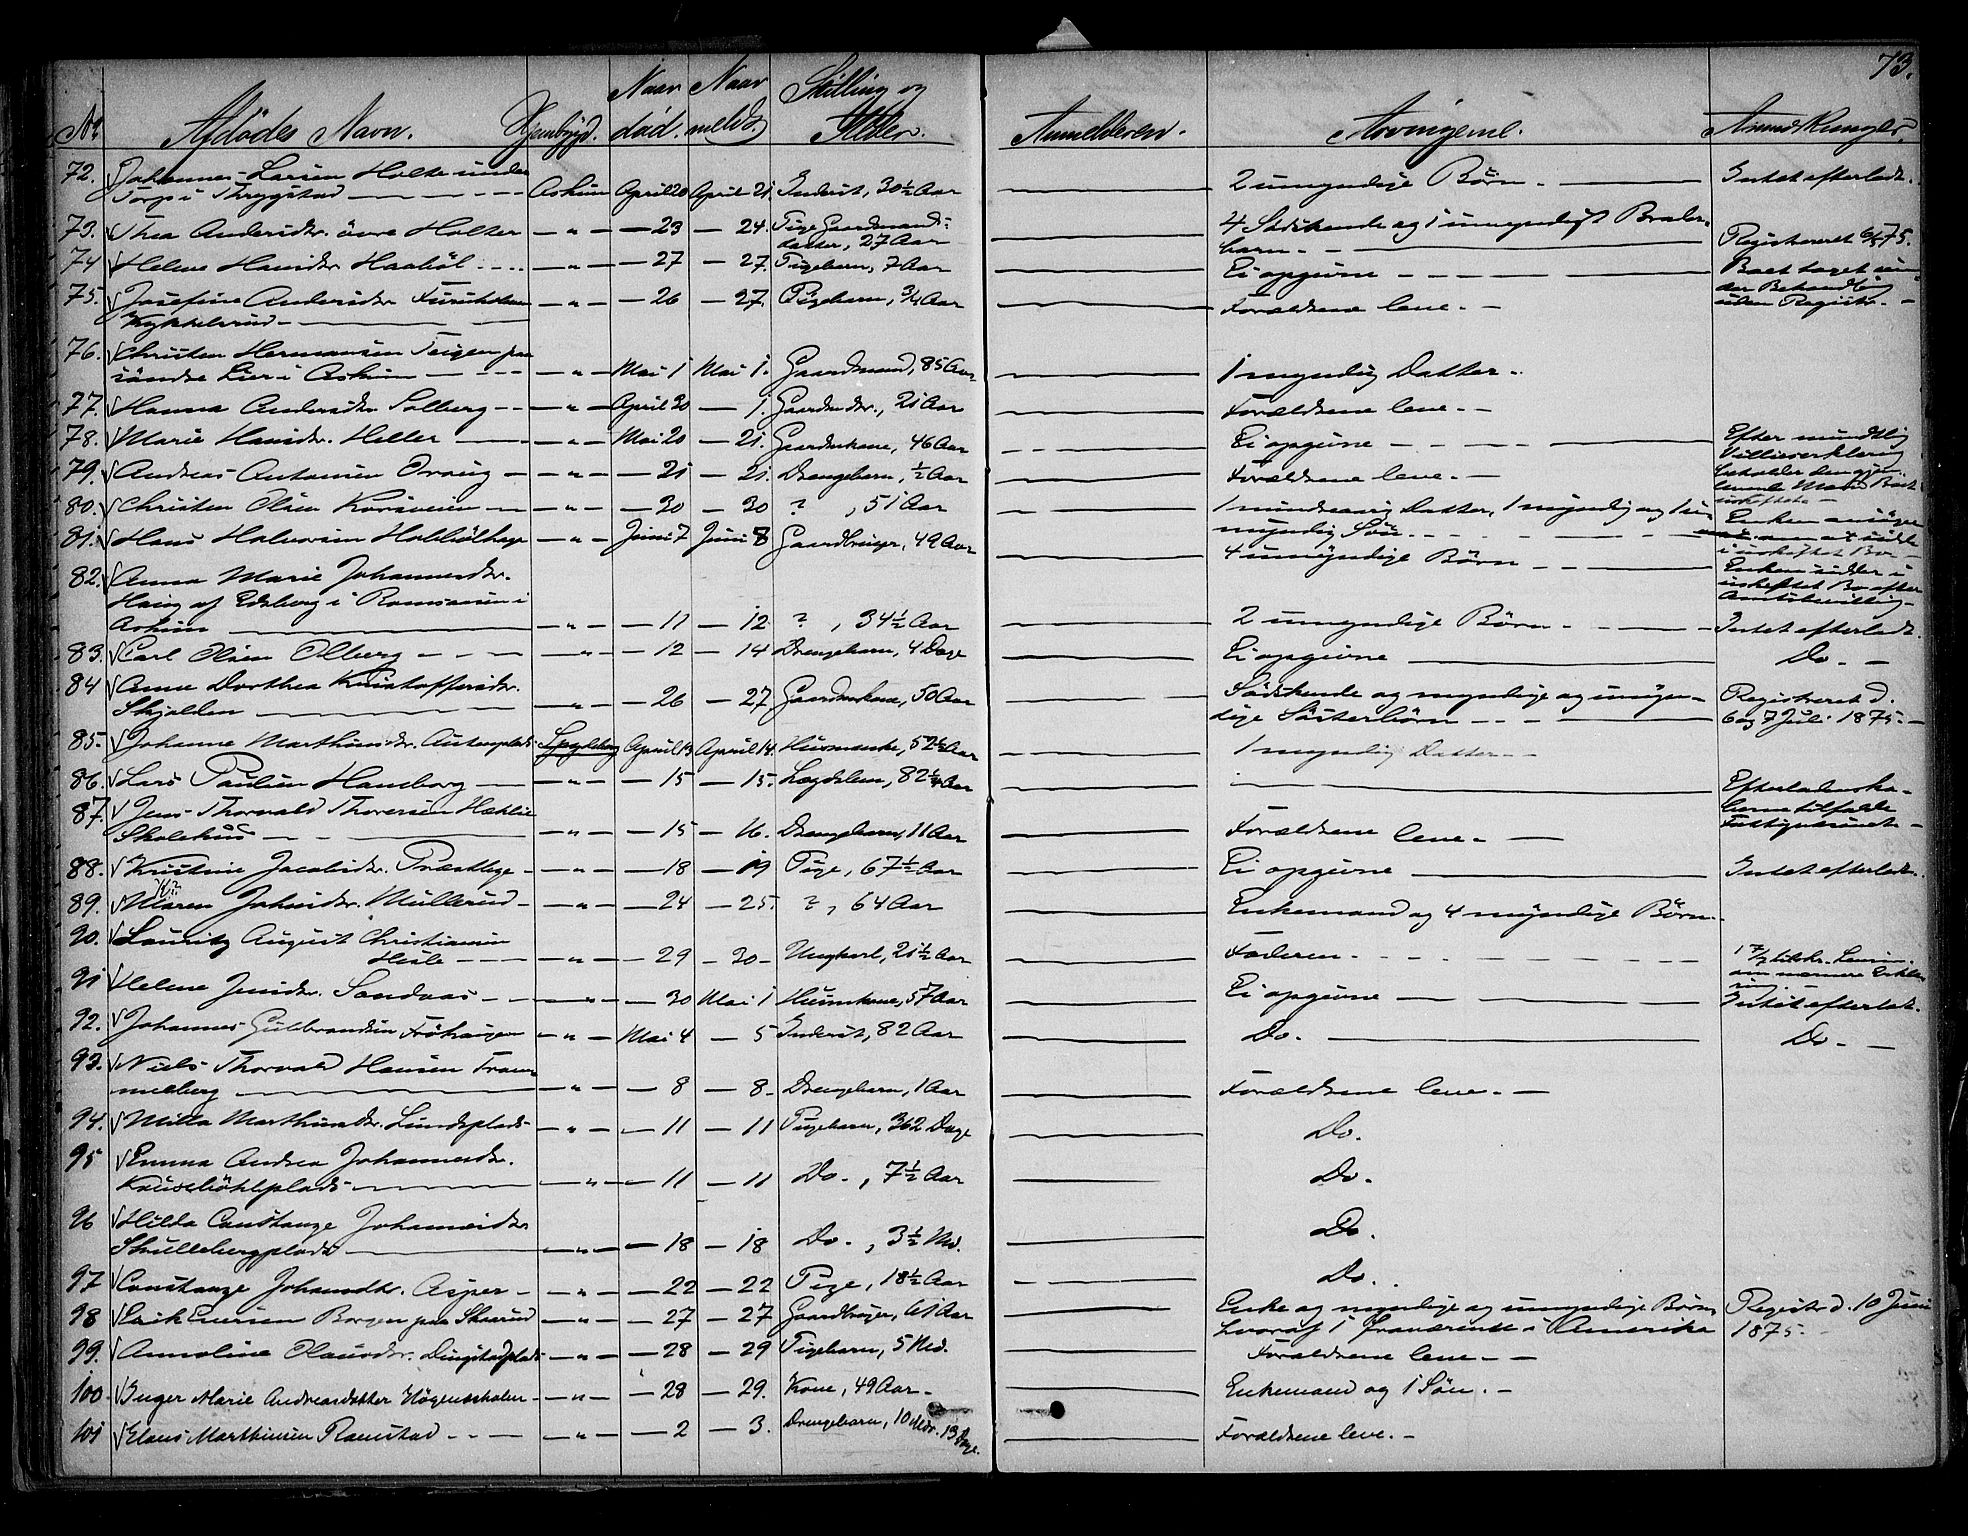 73.
No. Afdödes Navn. Hjembygd. Naar död. Naar meldt. Stilling og Alder. Anmelderen. Arvingerne. Anmærkninger.
72. Johannes Larsen Holte under
Torp i Thrygstad Askim April 20 April 21. Inderst, 30½ Aar 2 umyndige Börn. Intet efterladt.
73. Thea Andersdtr. övre Holter - " - 23 - 24. Pige Gaardmands-
datter, 27 Aar 4 Södskende og 1 umyndigt Broder-
barn. Registreret 6/5 75.
74 Helene Hansdtr. - " - 27 - 27. Pigebarn, 7 Aar Ei opgivne Boet taget un-
der Behandling
uden Registr.
75. Josefine Andersdtr.
Kykkelsrud - " - 26 - 27. Pigebarn, ¾ Aar Forældrene leve.
76. Christen Hermansen Teigen paa
söndre Lier i Askim - " - Mai 1 Mai 1. Gaardmand, 85 Aar 1 myndig Datter.
77. Hanna Andersdtr. Solberg - " - April 30 - 1. Gaardmdtr., 21 Aar Forældrene leve.
78. Marie Hansdtr. Heller - " - Mai 20 - 21. Gaardmkone, 46 Aar Ei opgivne Efter mundtlig
Villieserklæring
beholder den gjen-
levende Mand Boet
uskiftet.
79. Andreas Antonsen - " - 21 - 21. Drengebarn, ½ Aar Forældrene leve.
80. Christen Olsen Korsveien - " - 30 - 30 ? , 51 Aar 1 mindreaarig Datter, 1 myndig og 1 u-
myndig Sön. Enken
i uskiftet Bo
81. Hans Halvorsen - " - Juni 7 Juni 8 Gaardbruger, 49 Aar 4 umyndige Börn Enken sidder i
uskiftet Bo efter
Amtsbevilling.
82. Anna Marie Johannesdtr.
Haug af Edsberg i Romsaasen i
Askim - " - 11 - 12 ? , 34½ Aar 2 umyndige Börn Intet efterladt.
83. Carl Olsen Olberg - " - 12 - 14 Drengebarn, 4 Dage Ei opgivne Do.
84 Anne Dorthea Kristoffersdtr.
Skjolden - " - 26 - 27 Gaardmkone, 50 Aar Södskende og myndige og umyn-
dige Sösterbörn Registreret d.
6 og 7 Juli 1875.
85. Johanne Marthinsdtr. April 13 April 14. Husmenke, 52½ Aar 1 myndig Datter
86. Lars Paulsen Hamborg - " - 15 - 15. Lægdslem, 82¼ Aar Efterladenska-
berne tilfalde
Fattigvæsenet
87. Jens Thorvald Thoresen
Skolehus - " - 15 - 16. Drengebarn, 11 Aar Forældrene leve.
88. Kristine Jacobsdtr. - " - 18 - 19 Pige, 67½ Aar Ei opgivne Intet efterladt.
89. Maren Johnsdtr. Müllerud - " - 24 - 25. ? , 64 Aar Enkemand og 4 myndige Börn.
90. Lauritz August Christiansen
Hesle - " - 29 - 30 - Ungkarl, 21½ Aar Faderen.
91 Helene Jensdtr. Sandaas - " - 30 Mai 1 Husmkone, 57 Aar Ei opgivne Intet efterlat.
92. Johannes Gulbrandsen Fröhaugen - " - Mai 4 - 5 Inderst, 82 Aar Do. Do.
93. Niels Thorvald Hansen Tram-
melberg - " - 8 - 8. Drengebarn, 1 Aar Forældrene leve.
94. Milla Marthinsdtr. Lundsplads - " - 11 - 11 Pigebarn, 362 Dage Do.
95 Emma Andrea Johannesdtr.
- " - 11 - 11 Do. , 7½ Aar Do.
96 Hilda Constanze Johannesdtr.
Skullebergplads - " - 18 - 18 Do. , 3½ Md. Do.
97 Constanze Johansdtr. Asper - " - 22 - 22 Pige, 18½ Aar Do.
98 Erik Evensen Borgen paa Skaarud - " - 27 - 27 Gaardbruger, 61 Aar Enke og myndige og umyndige Börn,
hvoraf 1 fraværende i Amerika Registr d. 10 Juni
1875.
99. Annoline Olausdtr. Dingstadplads - " - 28 - 29 Pigebarn, 5 Md. Forældrene leve.
100. Inger Marie Andreasdatter - " - 28 - 29. Kone, 49 Aar. Enkemand og 1 Sön.
101 Elaus Marthinsen Ramstad - " - 2 - 3. Drengebarn, 10 Mdr. 13 Dage. Forældrene leve.